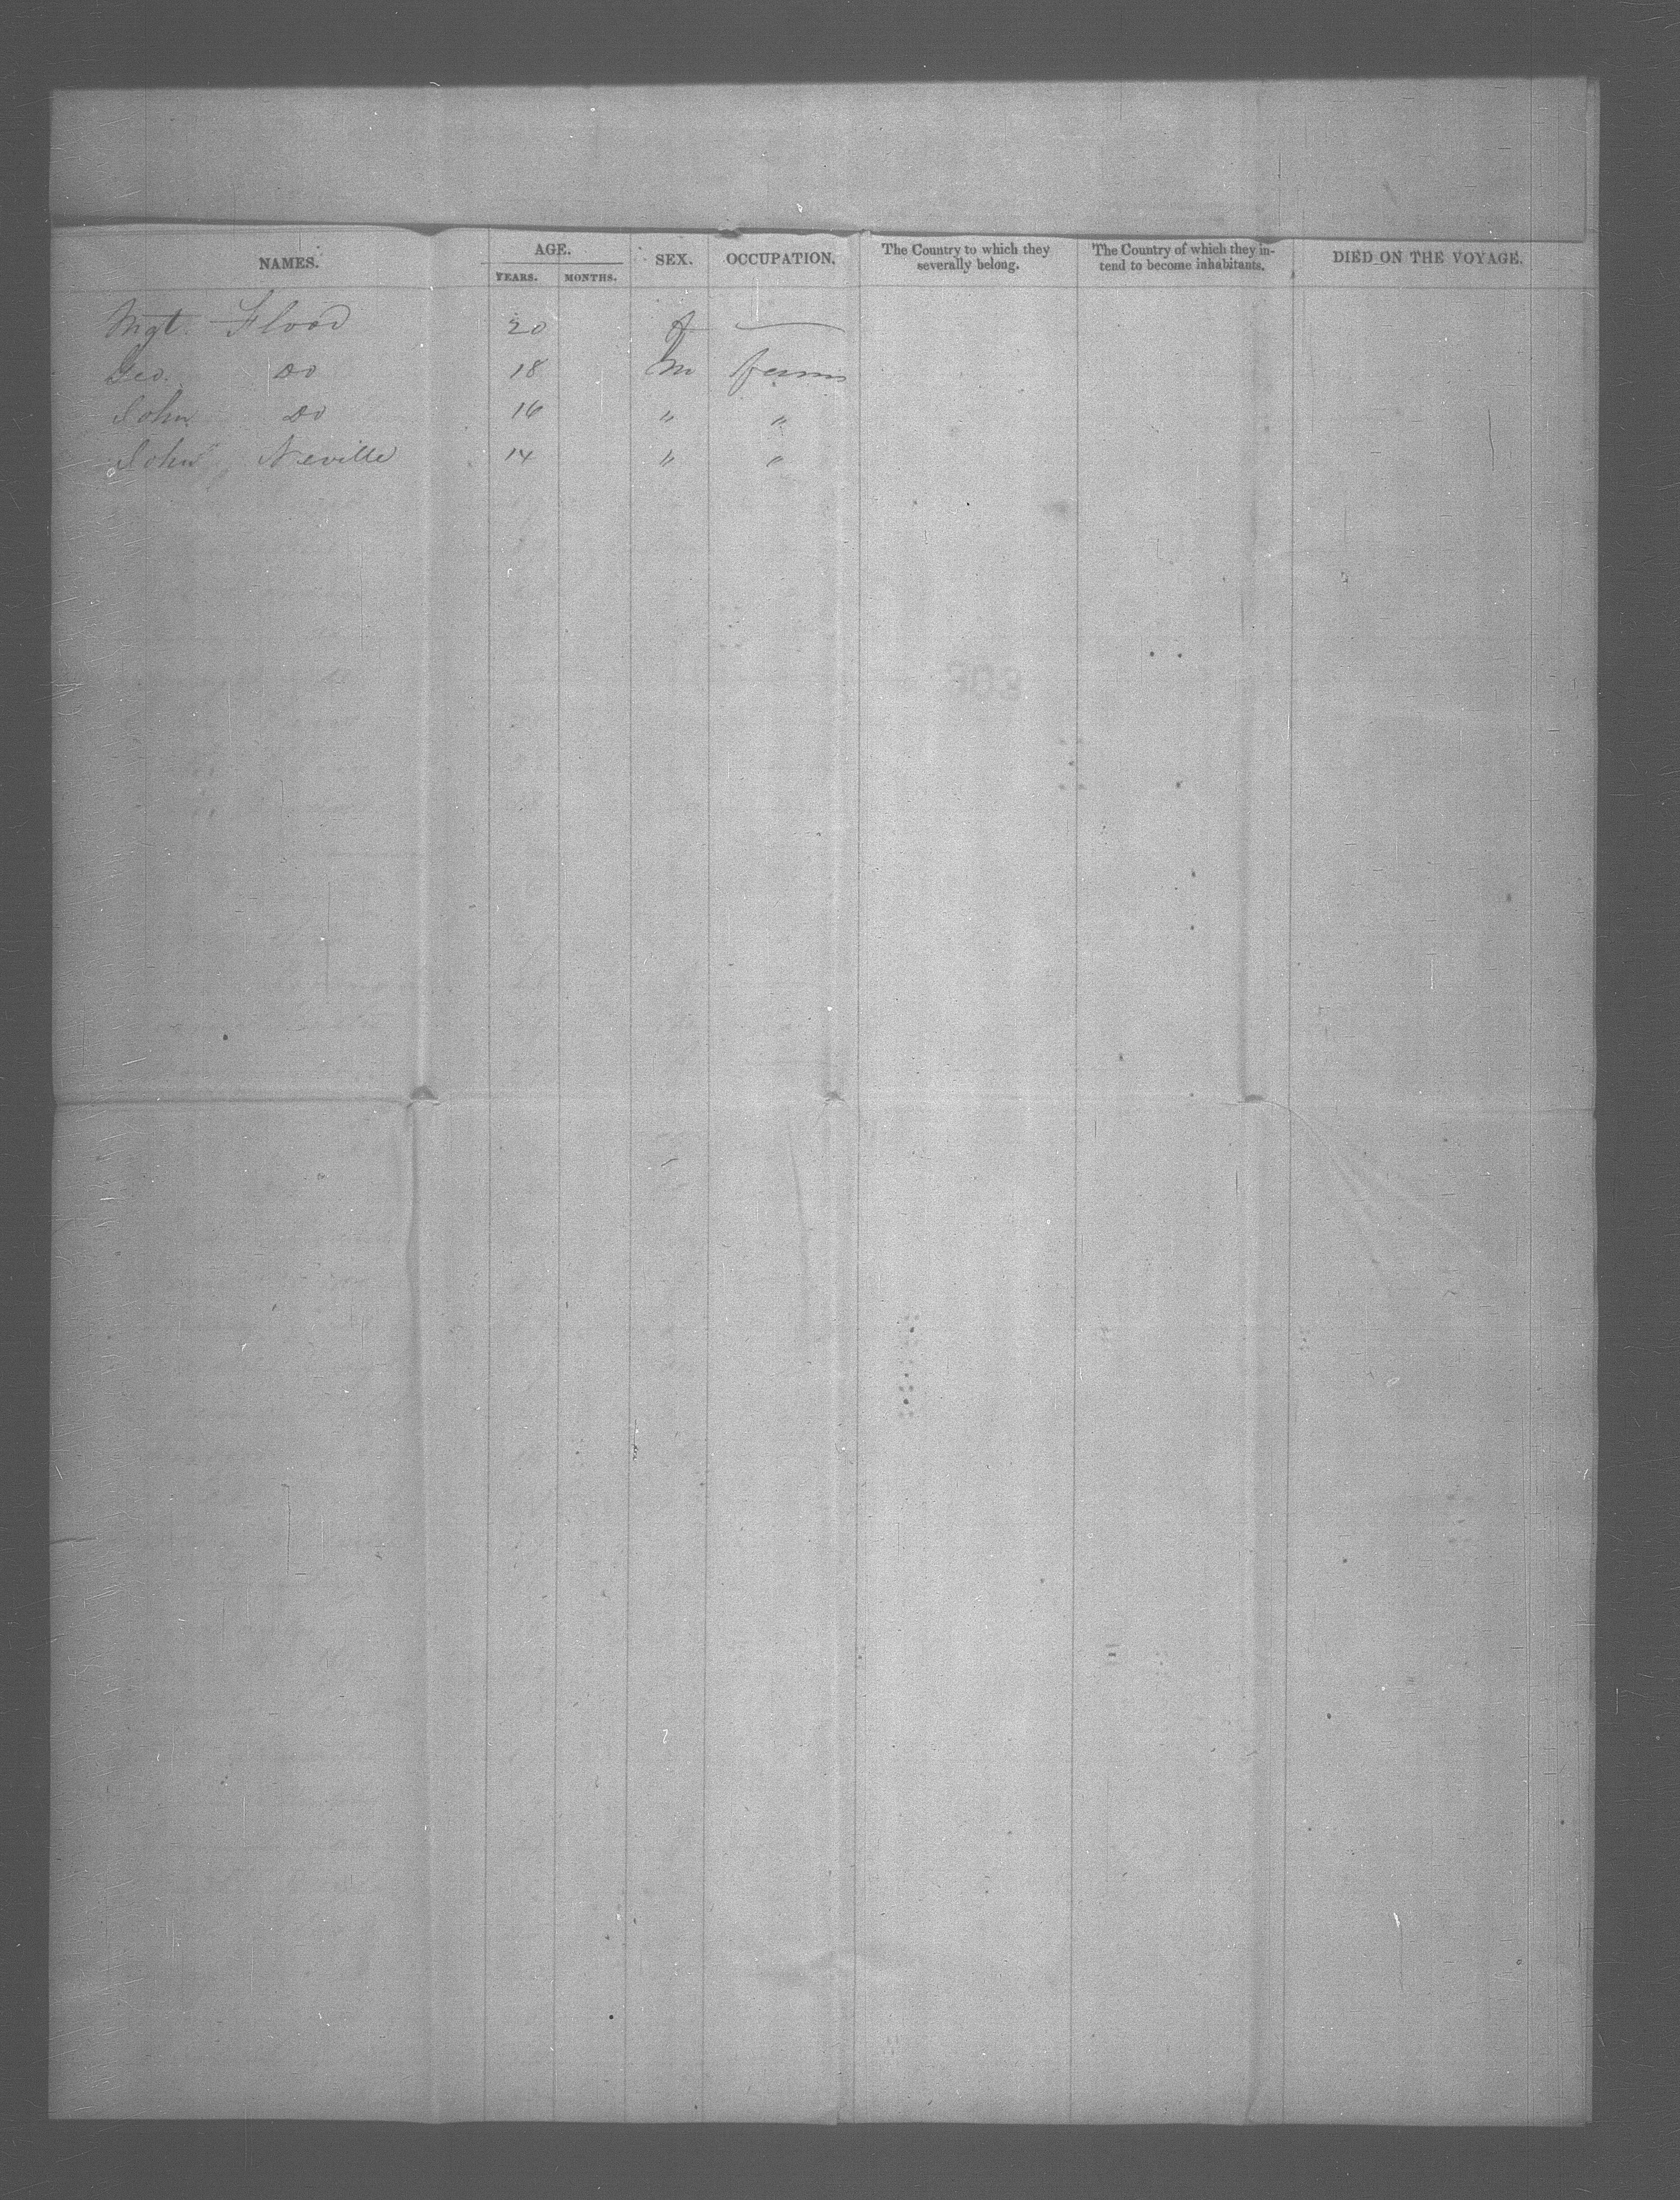 NAMES. AGE. SEX. OCCUPATION. The Country to which they severally belong. The Country of which they intend to become inhabitants. DIED ON THE VOYAGE.
YEARS. MONTHS.
Mgt. Flood 20 f —
Geo. Do 18 m
John Do 16 " "
John Neville 14 " "